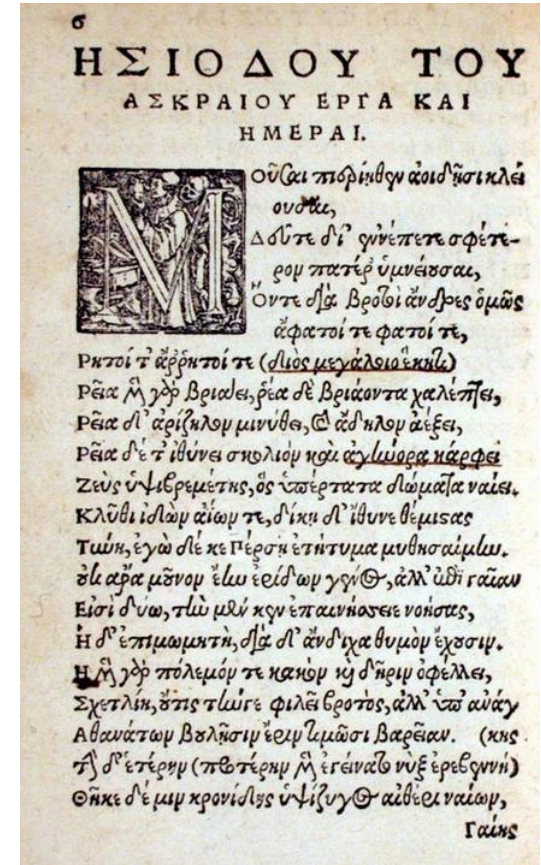 6
ΗΣΙΟΔΟΥ ΤΟΥ
ΑΣΚΡΑΙΟΥ ΕΡΓΑ ΚΑΙ
ΗΜΕΡΑΙ.
ΜΟῦσαι πιερίηθεν ἀοιδῇσι κλεί
ουσαι,
Δεῦτε δί' ἐννέπετε σφέτε-
ρον πατέρ' ὑμνείουσαι,
Ὅντε διὰ βροτοὶ ἄνδρες ὁμῶς
ἄφατοί τε φατοί τε,
Ρητοί τ' ἄρρητοί τε (διὸς μεγάλοιο ἕκητι)
Ρεῖα μὲν γὰρ βριάει, ῥέα δὲ βριάοντα χαλέπτει,
Ρεῖα δ' ἀρίζηλον μινύθει, καὶ ἄδηλον ἀέξει,
Ρεῖα δέ τ' ἰθύνει σκολιὸν καὶ ἀγήνορα κάρφει
Ζεὺς ὑψιβρεμέτης, ὃς ὑπέρτατα δώματα ναίει.
Κλῦθι ἰδὼν αἰών τε, δίκῃ δ' ἴθυνε θέμιστας
Τύνη, ἐγὼ δέ κε Πέρσῃ ἐτήτυμα μυθησαίμην.
οὐκ ἄρα μοῦνον ἔην ἐρίδων γένος, ἀλλ' ἐπὶ γαῖαν
Εἰσὶ δύω, τὴν μέν κεν ἐπαινήσειε νοήσας,
Η δ' ἐπιμωμητὴ, διὰ δ' ἄνδιχα θυμὸν ἔχουσιν.
Η μὲν γὰρ πόλεμόν τε κακὸν καὶ δῆριν ὀφέλλει,
Σχετλίη, οὔτις τήνγε φιλεῖ βροτὸς, ἀλλ' ὑπ' ἀνάγ
Αθανάτων βουλῇσιν ἔριν τιμῶσι βαρεῖαν. (κης
τὴν δ' ἑτέρην (προτέρην μὲν ἐγείνατο νὺξ ἐρεβεννή)
Θῆκε δέ μιν κρονίδης ὑψίζυγος αἰθέρι ναίων,
Γαίης